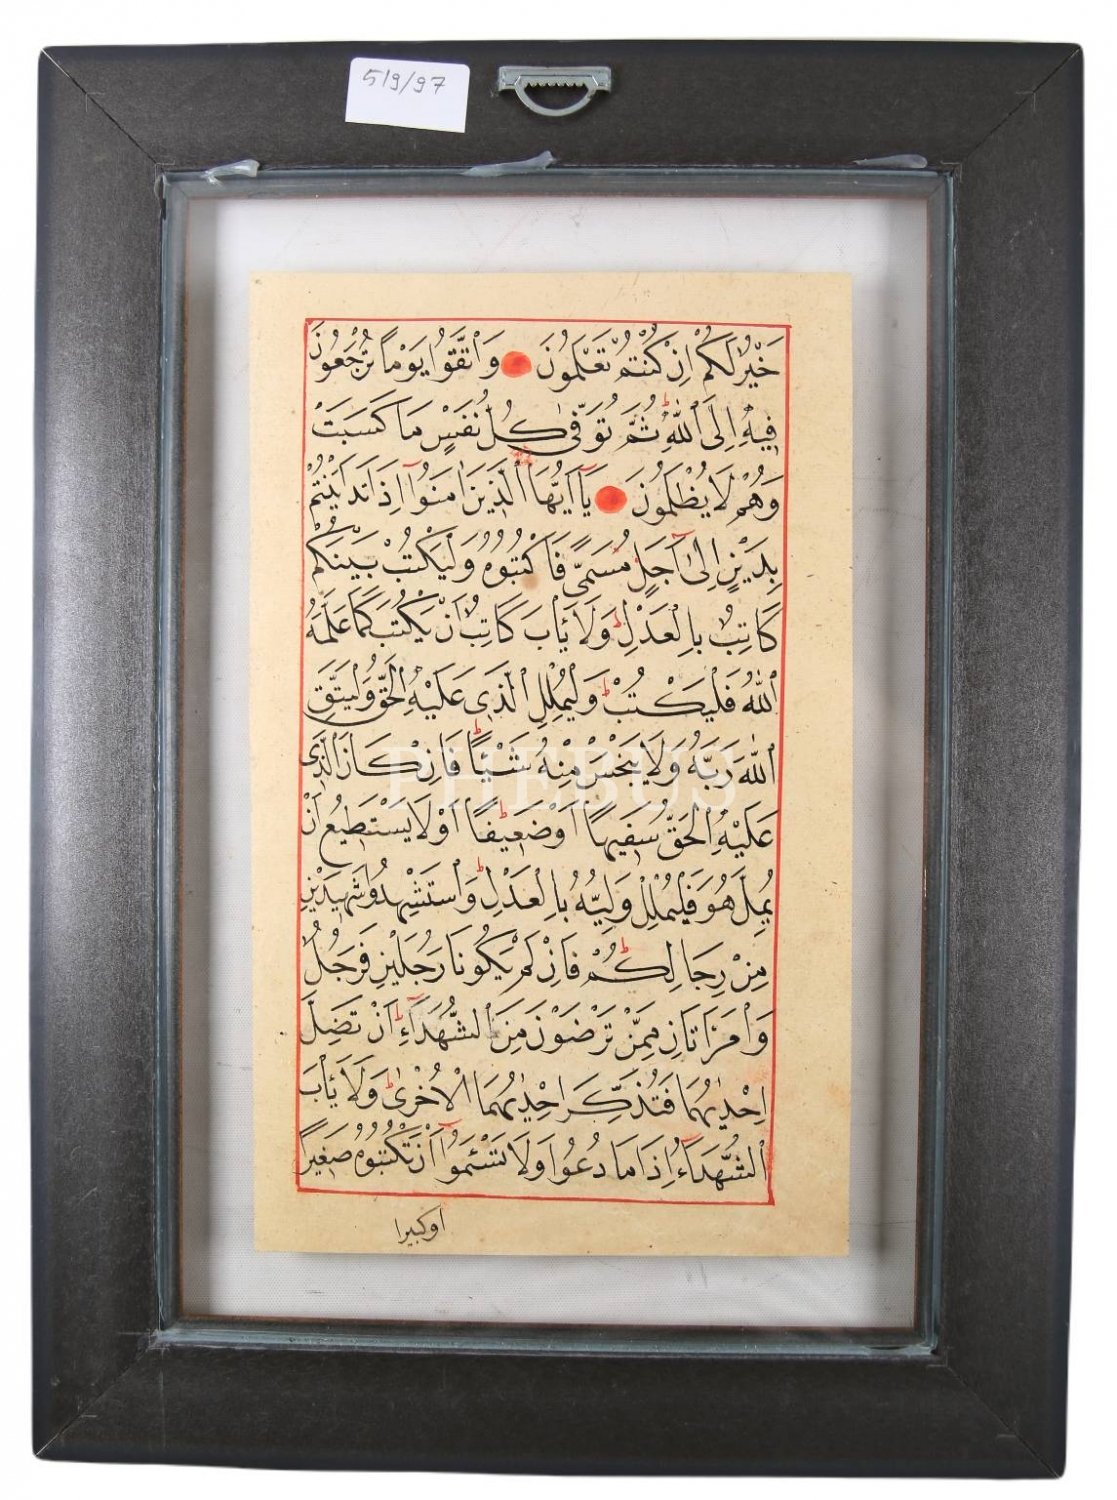 519/97
خَيْرٌ لَكُمْ اِنْ كُنْتُمْ تَعْلَمُونَ وَاتَّقُوا يَوْمًا تُرْجَعُونَ
فِيهِ اِلَى اللّٰهِ ثُمَّ تُوَفّٰى كُلُّ نَفْسٍ مَا كَسَبَتْ
وَهُمْ لَا يُظْلَمُونَ يَآ اَيُّهَا الَّذِينَ اٰمَنُوٓا اِذَا تَدَايَنْتُمْ
بِدَيْنٍ اِلٰٓى اَجَلٍ مُسَمًّى فَاكْتُبُوهُ وَلْيَكْتُبْ بَيْنَكُمْ
كَاتِبٌ بِالْعَدْلِ وَلَا يَأْبَ كَاتِبٌ اَنْ يَكْتُبَ كَمَا عَلَّمَهُ
اللّٰهُ فَلْيَكْتُبْ وَلْيُمْلِلِ الَّذِى عَلَيْهِ الْحَقُّ وَلْيَتَّقِ
اللّٰهَ رَبَّهُ وَلَا يَبْخَسْ مِنْهُ شَيْئًا فَاِنْ كَانَ الَّذِى
عَلَيْهِ الْحَقُّ سَفِيهًا اَوْ ضَعِيفًا اَوْ لَا يَسْتَطِيعُ اَنْ
يُمِلَّ هُوَ فَلْيُمْلِلْ وَلِيُّهُ بِالْعَدْلِ وَاسْتَشْهِدُوا شَهِيدَيْنِ
مِنْ رِجَالِكُمْ فَاِنْ لَمْ يَكُونَا رَجُلَيْنِ فَرَجُلٌ
وَامْرَاَتَانِ مِمَّنْ تَرْضَوْنَ مِنَ الشُّهَدَآءِ اَنْ تَضِلَّ
اِحْدٰيهُمَا فَتُذَكِّرَ اِحْدٰيهُمَا الْاُخْرٰى وَلَا يَأْبَ
الشُّهَدَآءُ اِذَا مَا دُعُوا وَلَا تَسْئَمُوٓا اَنْ تَكْتُبُوهُ صَغِيرًا
اوكبيرا
PHEBUS